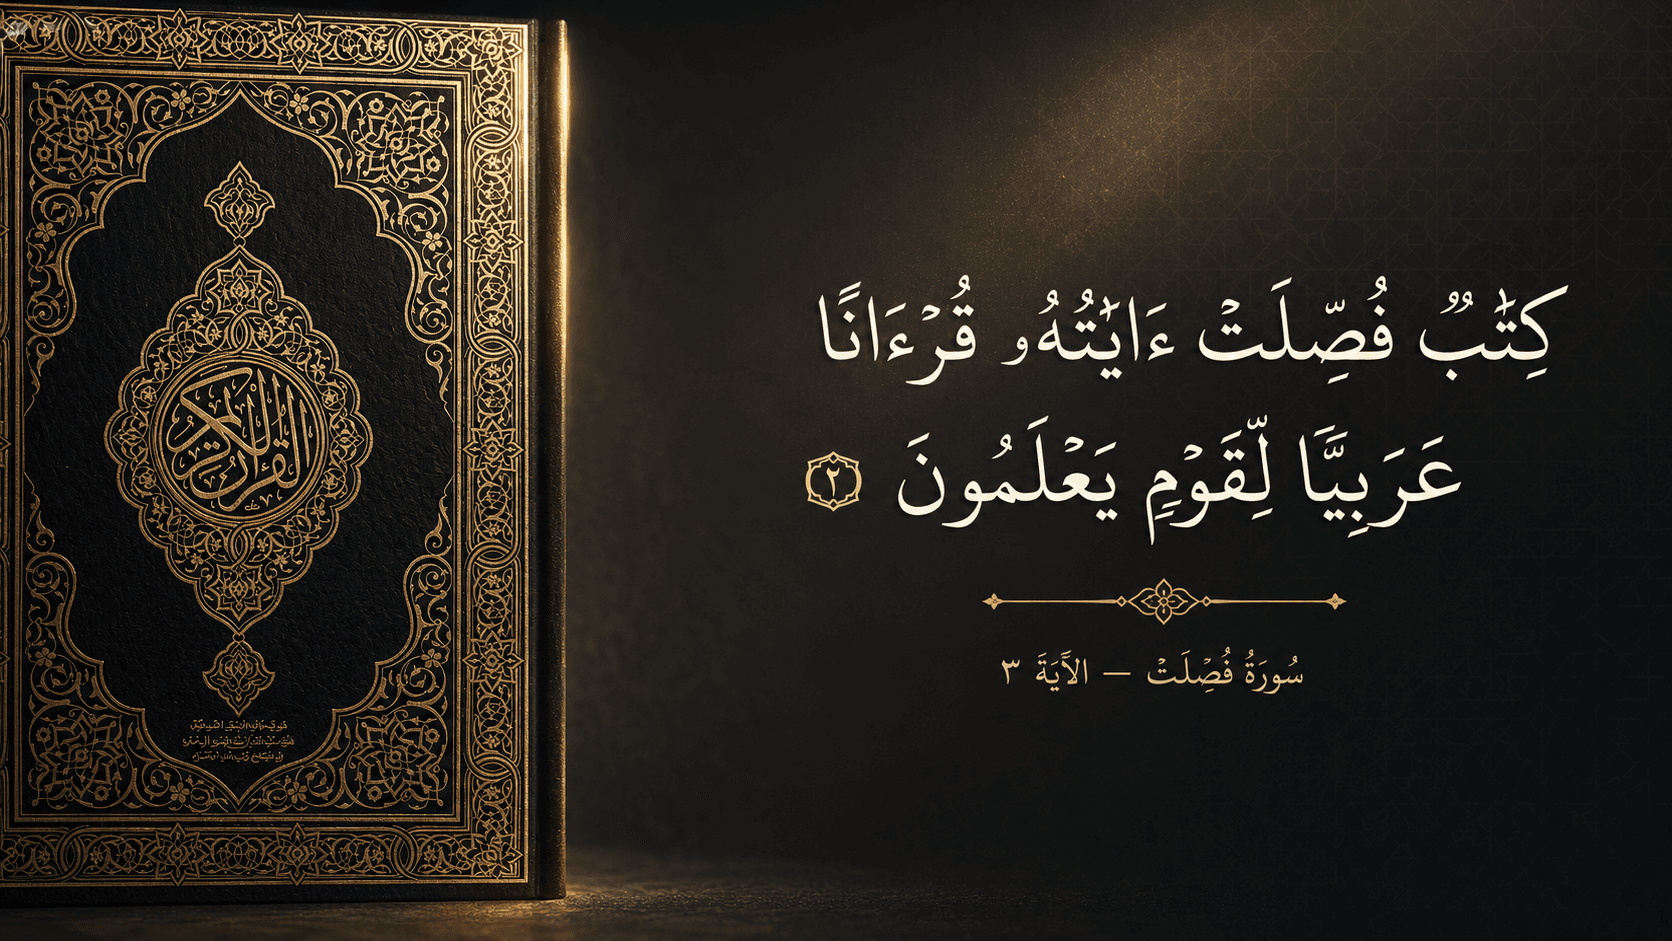 القرآن الكريم
كِتَٰبٌ فُصِّلَتْ ءَايَٰتُهُۥ قُرْءَانًا
عَرَبِيَّا لِّقَوْمِ يَعْلَمُونَ ٢
سُورَةُ فُصِّلَتْ – الآيَةَ ٣